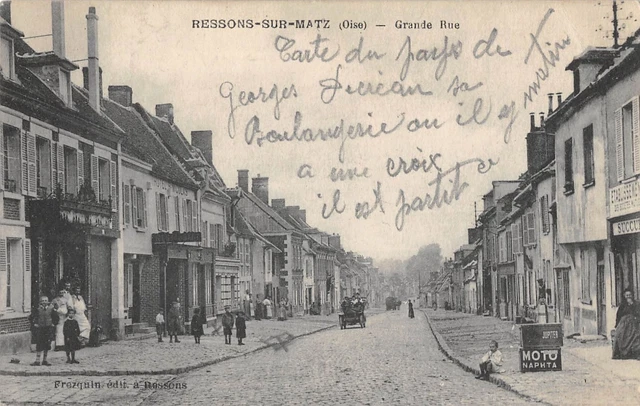 RESSONS-SUR-MATZ (Oise) — Grande Rue
Carte du pays de
Georges Decran sa
Boulangerie ou il y
a une croix
il est partit ce
matin
ETABLISS
SUCCU
JUPITER
MOTO
NAPHTA
Frozquin édit. à Ressons